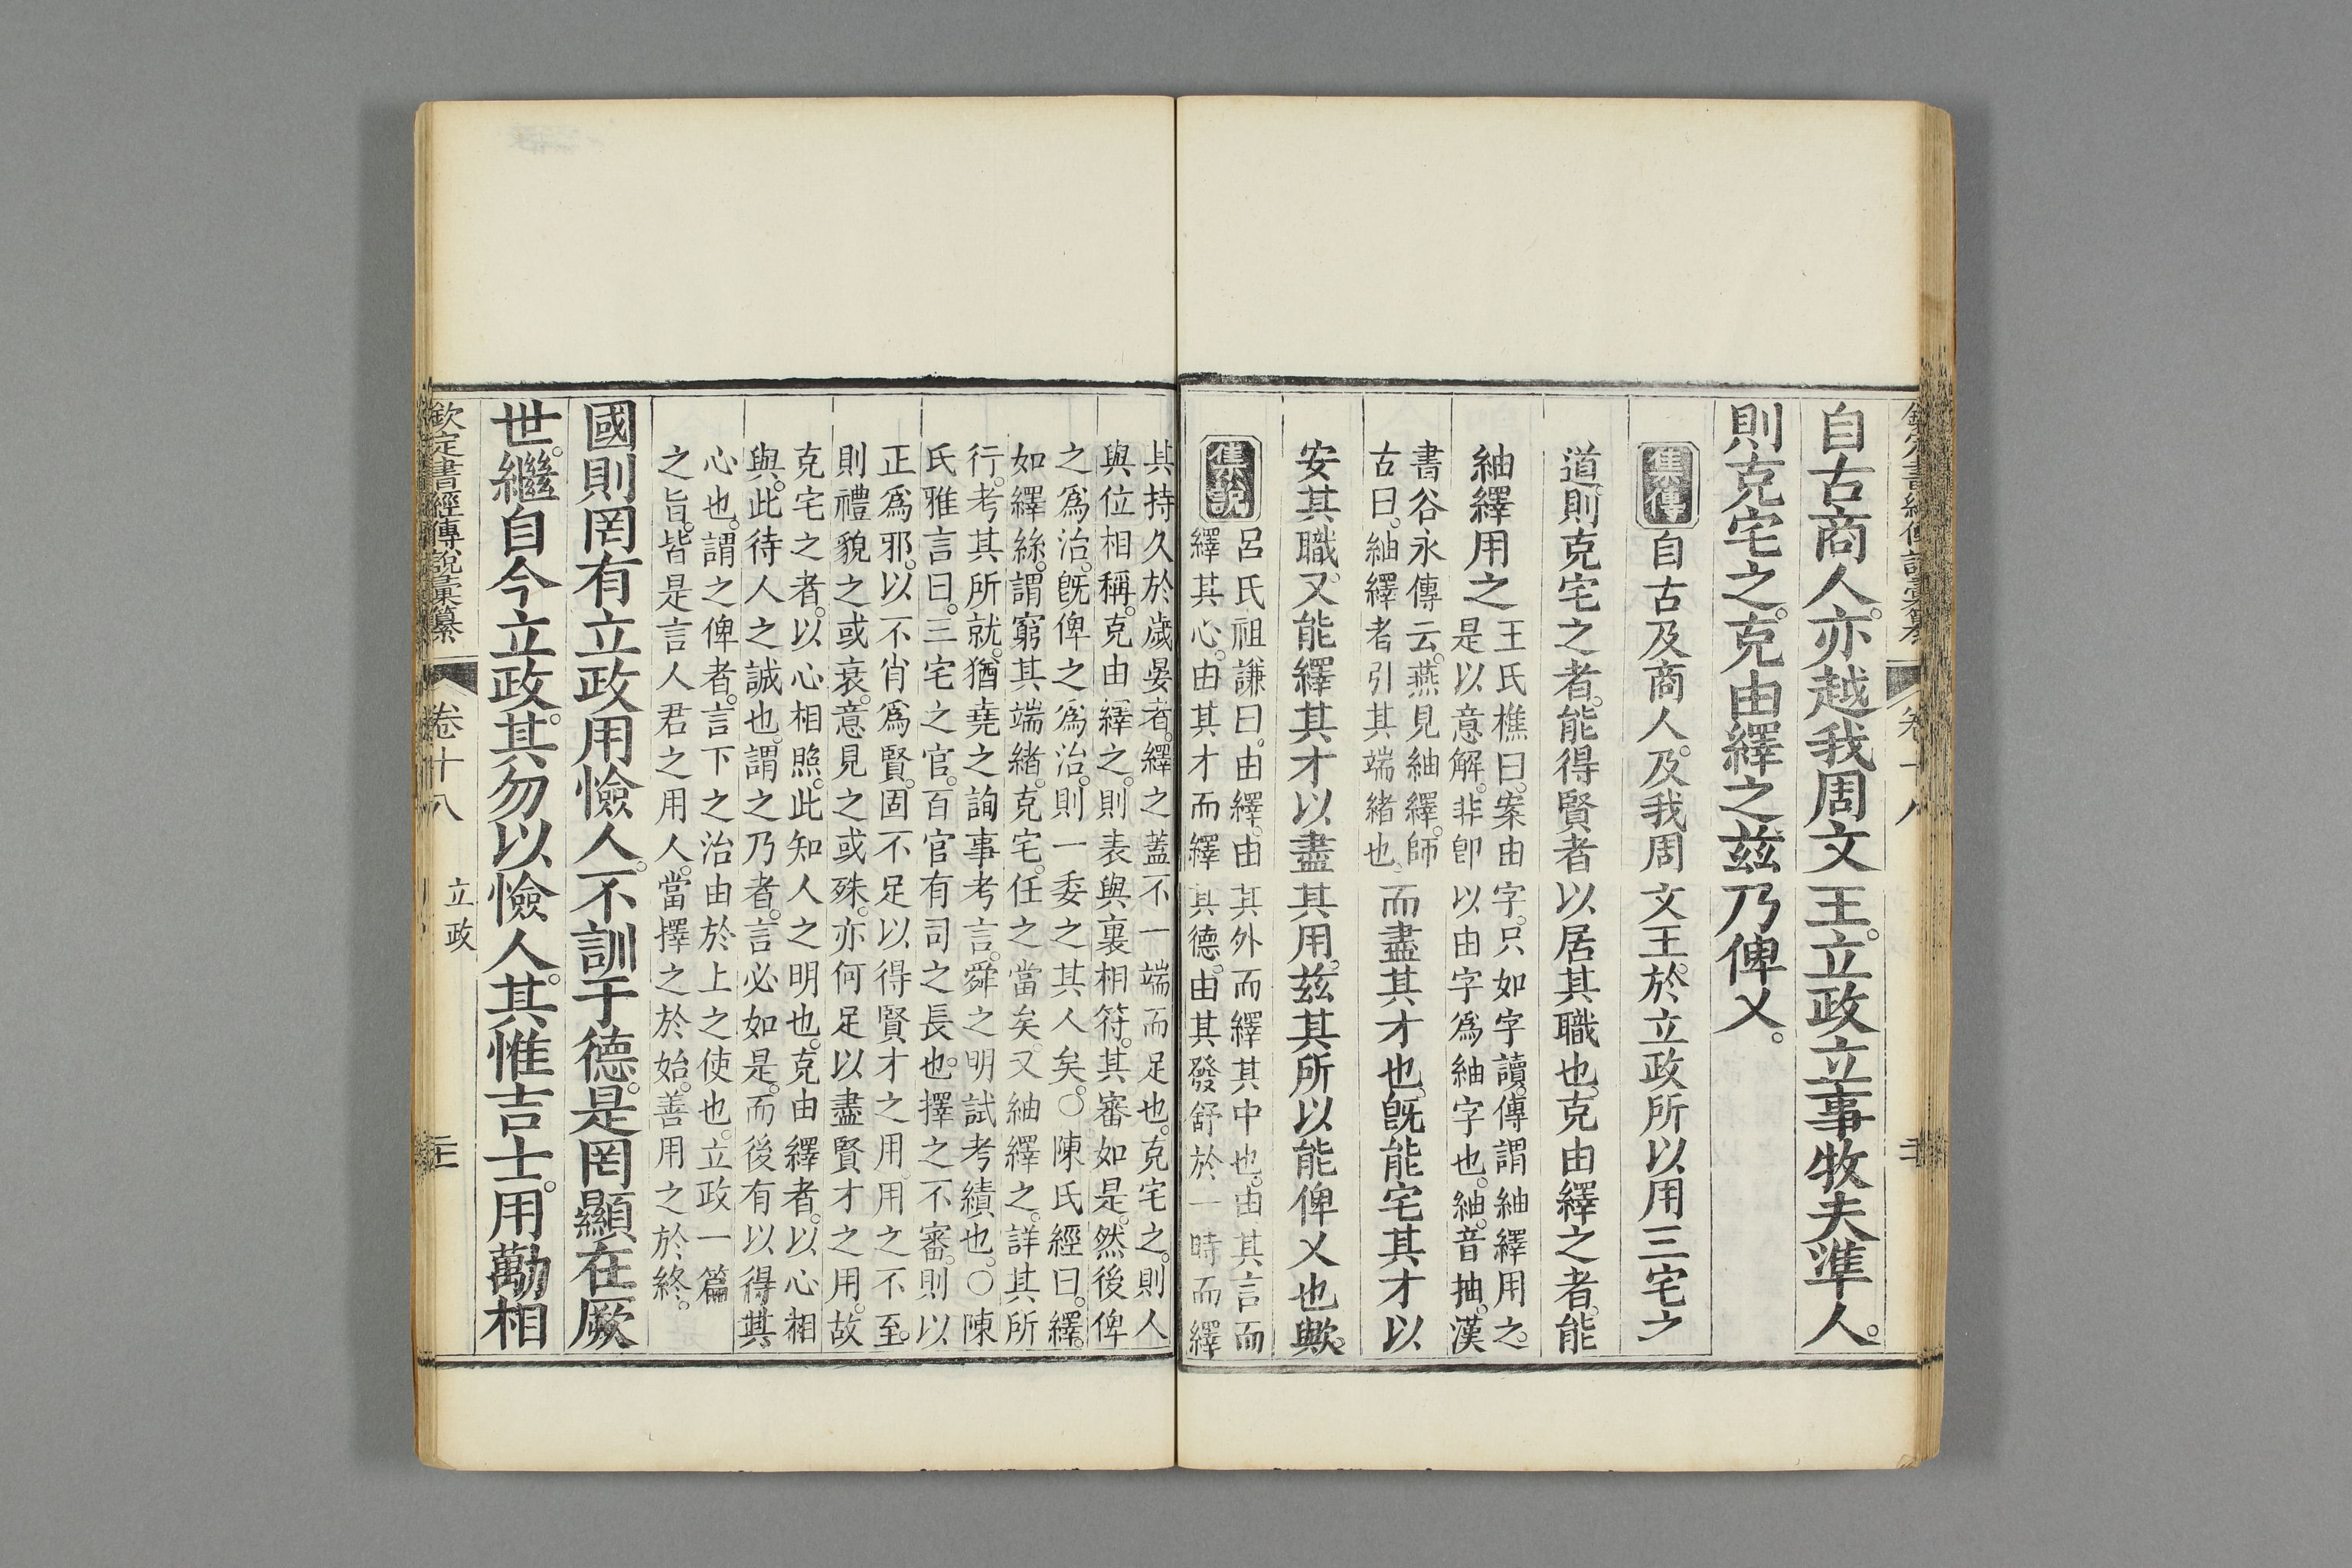 自古商人。亦越我周文王。立政立事牧夫準人。
則克宅之。克由繹之茲乃俾乂。
集傳
自古及商人。及我周文王。於立政所以用三宅之
道。則克宅之者。能得賢者以居其職也。克由繹之者。能
紬繹用之
王氏樵曰。案由字。只如字讀。傳謂紬繹用之。
是以意解。非卽以由字爲紬字也。紬。音抽。漢
書谷永傳云。燕見紬繹。師
古曰。紬繹者引其端緒也。
而盡其才也。旣能宅其才以
安其職。又能繹其才以盡其用。茲其所以能俾乂也歟。
集說
呂氏祖謙曰。由繹。由其外而繹其中也。由其言而
繹其心。由其才而繹其德。由其發舒於一時而繹
其持久於歲晏者。繹之蓋不一端而足也。克宅之。則人
與位相稱。克由繹之。則表與裏相符。其審如是。然後俾
之爲治。旣俾之爲治。則一委之其人矣。○陳氏經曰。繹。
如繹絲。謂窮其端緒。克宅。任之當矣。又紬繹之。詳其所
行。考其所就。猶堯之詢事考言。舜之明試考績也。○陳
氏雅言曰。三宅之官。百官有司之長也。擇之不審。則以
正爲邪。以不肖爲賢。固不足以得賢才之用。用之不至。
則禮貌之或衰。意見之或殊。亦何足以盡賢才之用。故
克宅之者。以心相照。此知人之明也。克由繹者。以心相
與。此待人之誠也。謂之乃者。言必如是。而後有以得其
心也。謂之俾者。言下之治由於上之使也。立政一篇
之旨。皆是言人君之用人。當擇之於始。善用之於終。
國則罔有立政用憸人。不訓于德。是罔顯在厥
世。繼自今立政。其勿以憸人。其惟吉士。用勱相
欽定書經傳說彙纂
卷十八
立政